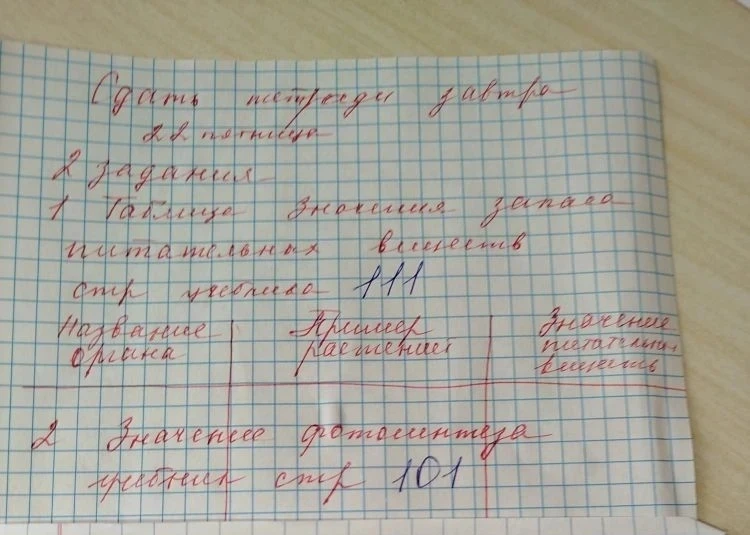 Сдать тетради завтра
22 пятница
2 задания
1 Таблица Значения запаса
питательных веществ
стр учебника 111
Название органа | Пример растении | Значение питательных веществ
2 Значение фотосинтеза
учебник стр 101